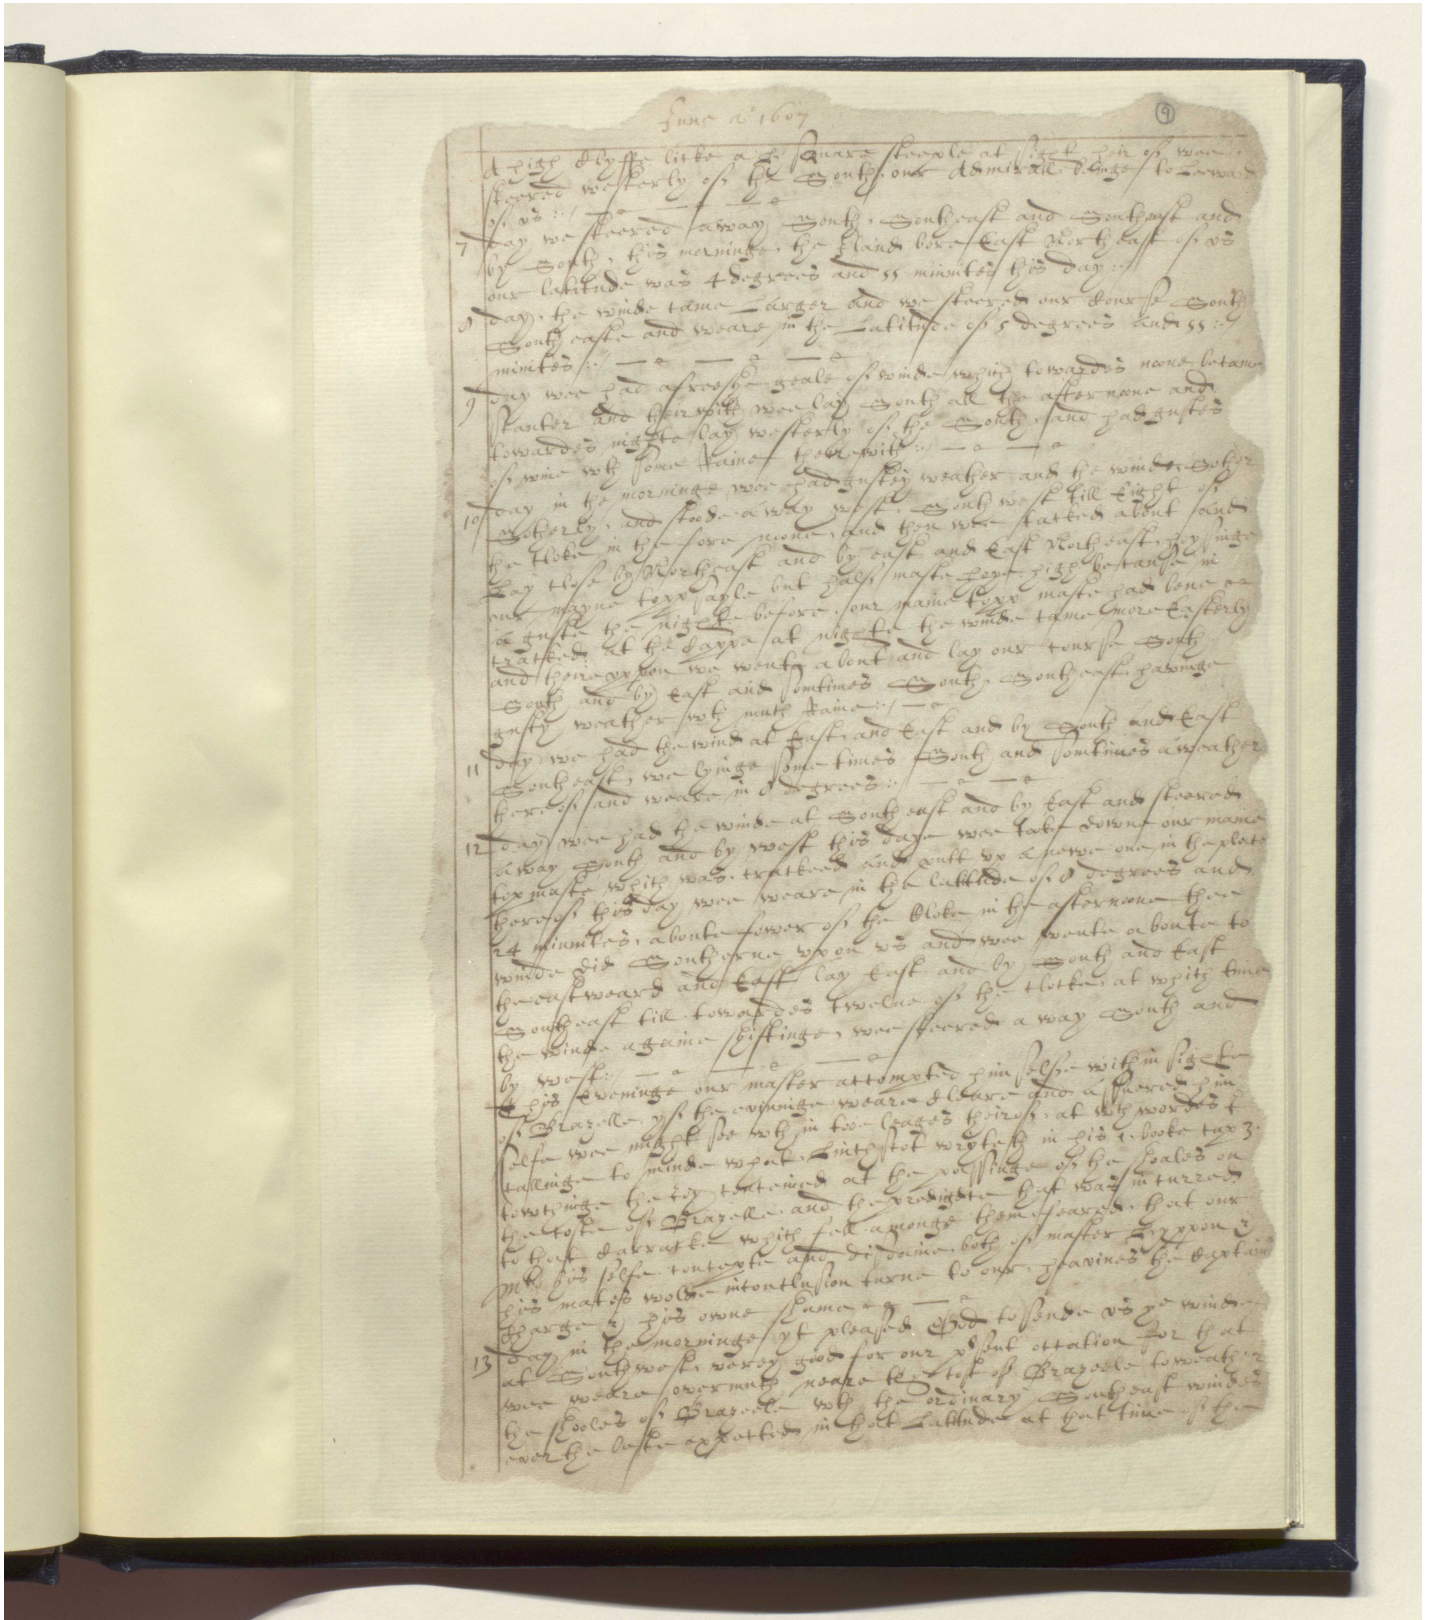 June Ao 1607
9
A high Clyffe licke a he Square steeple at sight heir of wee
steered westerly of the South, our Admirall beinge to Leeward
of us
7 day we steered away South, South east and Southeast and
by South, this morninge the Iland bore East North east of us
our latitude was 4 degrees and 11 minnites this day
8 day, the winde came Larger and we steered our Course South
South easte and weare in the Latitude of 5 degrees and 11
minites
9 day wee had a freeshe geale of winde which towardes noone became
skanter and heirwith wee lay South all the afternoone and
towardes nighte lay westerly of the South, and had gustes
of wine wth some Raine therewith
10 day in the morninge wee had gustey weather and the winde
Sotherly, and stoode away west, South west till Eight of
the cloke in the fore noone, and then wee tacked about and
Lay close by North east and by east and East North east, hoyssinge
our mayne topp sayle but half maste high because in
a guste the nighte before, our maine topp maste had bene
cracked at the cappe at nighte the winde came more Easterly
and theireuppon we wente about and lay our course South
South and by East and somtimes South, South east, havinge
gusty weather wth much Raine
11 day we had the wind at East, and East and by South and East
South east, we lyinge some times South and somtimes a weather
thereof and weare in 8 degrees
12 day wee had the winde at South east and by East and steered
away South and by west this daye wee tooke downe our maine
topmaste which was cracked and putt up a newe one in the place
thereof this day wee weare in the latitude of 8 degrees and
24 minnites, aboute fower of the Cloke in the afternoone thee
winde did Southerne upon us and wee wente aboute to
the eastward and East lay East and by South and East
South east till towardes twelve of the clocke, at which time
the winde againe shiftinge, wee steered away South and
by west
This Eveninge our master attempted him selfe within sighte
of Brazelle yf the evininge weare Cleare and assuered him
selfe wee might see wth in two leages theirof, at wch wordes I
callinge to minde what Linchscot wryteth in his 1 booke cap 3.
towchinge the joy conceived at the passinge of the shoales on
the coste of Brazelle, and the that was incurred
to that Carracke which fell amonge them, feared, that our
mr his selfe conceyte and disdaine, both of master &
his mates wolde in conclusion turne to our heavines the Captains
Charge & his owne shame
13 day in the morninge yt pleased God to sende us ye winde
at South west, verey good for our psent occation for that
wee weare overmuch neare the cost of Brazeele to weather
the shooles of Brazeele wth the ordinary South east windes
ever the leaste expected in that Latitude at that time of the